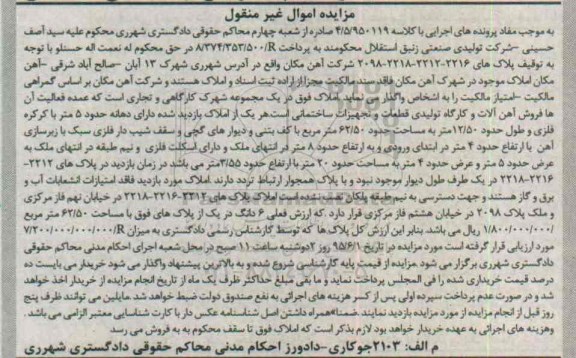 مزایده اموال غیر منقول
به موجب مفاد پرونده های اجرایی با کلاسه ۴/۵/۹۵۰۱۱۹ صادره از شعبه چهارم محاکم حقوقی دادگستری شهرری محکوم علیه سید آصف
حسینی -شرکت تولیدی صنعتی زنبق استقلال محکومند به پرداخت ۸/۳۷۴/۳۵۳/۵۰۰/R در حق محکوم له نعمت اله حسنلو با توجه
به توقیف پلاک های ۲۲۱۶-۲۲۱۲-۲۲۱۸-۲۰۹۸ شرکت آهن مکان واقع در آدرس شهرری شهرک ۱۳ آبان -صالح آباد شرقی -آهن
مکان املاک موجود در شهرک آهن مکان فاقد سند مالکیت مجزا از اداره ثبت اسناد و املاک هستند و شرکت آهن مکان بر اساس گمراهی
مالکیت -امتیاز مالکیت را به اشخاص واگذار می نماید. املاک فوق در یک مجموعه شهرک کارگاهی و تجاری است که عمده فعالیت آن
ها فروش آهن آلات و کارگاه تولیدی قطعات و تجهیزات ساختمانی است هر یک از املاک بازدید شده دارای دهانه حدود ۵ متر با کرکره
فلزی و طول حدود ۱۲/۵۰متر به مساحت حدود ۶۲/۵۰ متر مربع با کف بتنی و دیوار های گچی و سقف شیب دار فلزی سبک با زیرسازی
آهن با ارتفاع حدود ۴ متر در ابتدای ورودی و به ارتفاع حدود ۸ متر در انتهای ملک و دارای اسکلت فلزی و نیم طبقه در انتهای ملک به
عرض حدود ۵ متر و عرض حدود ۴ متر به مساحت حدود ۲۰ متر با ارتفاع حدود ۳/۵۵متر می باشد در زمان بازدید در پلاک های ۲۲۱۲-
۲۲۱۶-۲۲۱۸ در یک طرف طول دیوار موجود نبود و با پلاک همجوار ارتباط تردد دارند .املاک مورد بازدید فاقد امتیازات انشعابات آب و
برق و گاز هستند و جهت دسترسی به نیم طبقه پلکان نصب نشده است املاک پلاک های ۲۲۱۲-۲۲۱۶-۲۲۱۸ در خیابان نهم فاز مرکزی
و ملک پلاک ۲۰۹۸ در خیابان هشتم فاز مرکزی قرار دارد .که ارزش فعلی ۶ دانگ در یک از پلاک های فوق با مساحت ۶۲/۵۰ متر مربع
۱/۸۰۰/۰۰۰/۰۰۰/ ریال می باشد. بنابر این ارزش کل پلاک ها که توسط کارشناس رسمی دادگستری به میزان ۷/۲۰۰/۰۰۰/۰۰۰/R
مورد ارزیابی قرار گرفته است مورد مزایده در تاریخ ۹۵/۶/۱ روز دوشنبه ساعت ۱۱ صبح در محل شعبه اجرای احکام مدنی محاکم حقوقی
دادگستری شهرری برگزار می شود .مزایده از قیمت پایه کارشناسی شروع شده و به بالاترین پیشنهاد واگذار می شود خریدار می بایست ده
درصد قیمت خریداری شده را فی المجلس پرداخت نماید و ما بقی مبلغ حداکثر ظرف یک ماه از تاریخ انجام مزایده از خریدار اخذ خواهد
شد و در صورت عدم پرداخت سپرده اولی پس از کسر هزینه های اجرائی به نفع صندوق دولت ضبط خواهد شد.مایلین می توانند ظرف پنج
روز قبل از انجام مزایده از مورد مزایده بازدید نمایند .ضمنا همراه داشتن اصل شناسنامه عکس دار یا کارت شناسایی معتبر الزامی می باشد .
وهزینه های اجرائی به عهده خریدار خواهد بود لازم بذکر است که املاک فوق تا سقف محکوم به به فروش می رسد
م الف: ۲۱۰۳جوکاری-دادورز احکام مدنی محاکم حقوقی دادگستری شهرری